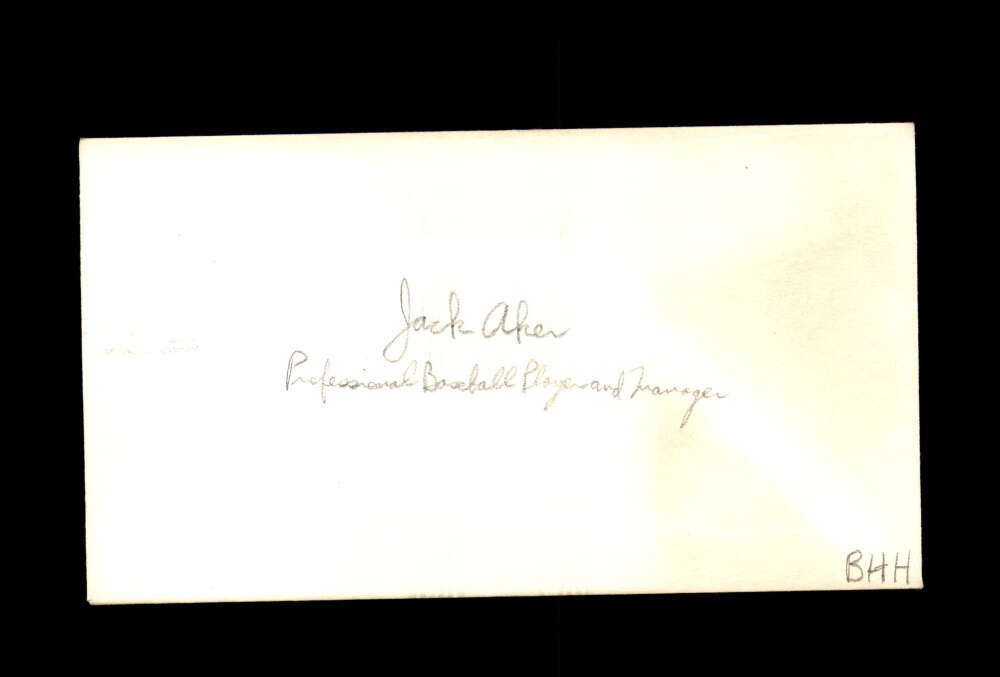 Jack Aker
Professional Baseball Player and Manager
BHH